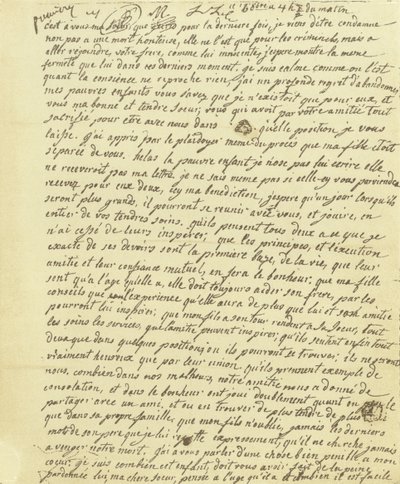 ce 16 8bre a 4 h ½ du matin
c'est a vous, ma soeur, que j'ecris pour la derniere fois, je viens d'etre condamnée
non pas a une mort honteuse, elle ne l'est que pour les criminels, mais a
aller rejoindre votre frere, comme lui innocente, j'espere montrer la meme
fermeté que lui dans ces derniers moments. je suis calme comme on l'est
quand la conscience ne reproche rien, j'ai un profond regret d'abandonner
mes pauvres enfants vous savez que je n'existois que pour eux, et
vous ma bonne et tendre soeur, vous qui avez par votre amitié tout
sacrifié pour etre avec nous dans quelle position, je vous
laisse. j'ai appris par le plaidoyer meme du procès que ma fille étoit
séparée de vous, helas la pauvre enfant je n'ose pas lui ecrire elle
ne receveroit pas ma lettre, je ne sais meme pas si celle-cy vous parviendra
recevez pour eux deux, icy ma benediction. j'espere qu'un jour lorsqu'ils
seront plus grands, il pourront se reunir avec vous, et jouire, en
entier de vos tendres soins, qu'ils pensent tous deux a ce que je
n'ai cessé de leurs inspirer, que les principes, et l'execution
exacte de ses devoirs sont la premiere base, de la vie, que leur
amitié et leur confiance mutuel, en fera le bonheur; que ma fille
sent qu'a l'age qu'elle a, elle doit toujours aider son frere, par les
conseils que l'experience qu'elle aura de plus que lui et son amitié
pourront lui inspirer; que mon fils a son tour rendent a sa soeur, tout
les soins, les services, que l'amitié peuvent inspirer; qu'ils sentent enfin tout
deux que dans quelques positions ou ils pourront se trouver, ils ne seront
vraiment heureux que par leur union. qu'ils prennent exemple de
nous, combien dans nos malheurs, notre amitié nous a donné de
consolation, et dans le bonheur ont joui doublement quant on peut le
partager avec un ami, et ou en trouver de plus tendre de plus
que dans sa propre famille, que mon fils n'oublie, jamais les derniers
mots de son pere que je lui repette expressement, qu'il ne cherche jamais
a venger notre mort. j'ai a vous parler d'une chose bien penible a mon
coeur. je sais combien cet enfant, doit vous avoir fait de la peine
pardonnez lui, ma chere soeur, pensez a l'age qu'il a et combien il est facile